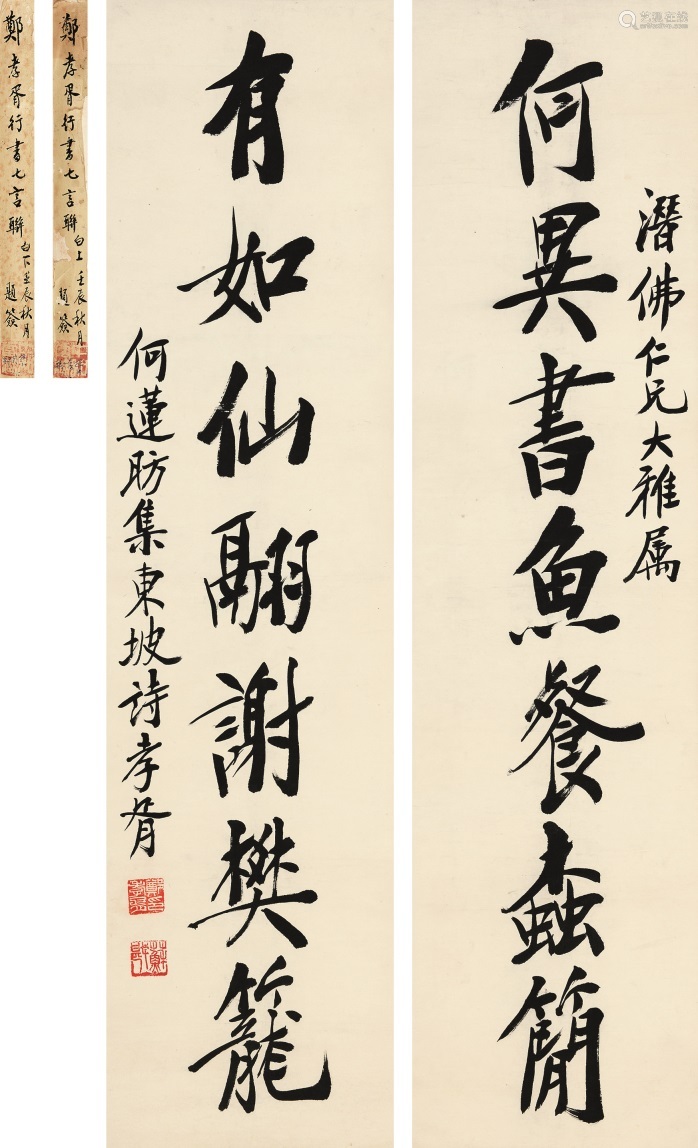 何異書魚餐蠹簡
潛佛仁兄大雅属
有如仙翮謝樊籠
何蓮昉集東坡詩孝胥
鄭孝胥行書七言聯
白上壬辰秋月
題簽
鄭孝胥行書七言聯
白下壬辰秋月
題簽